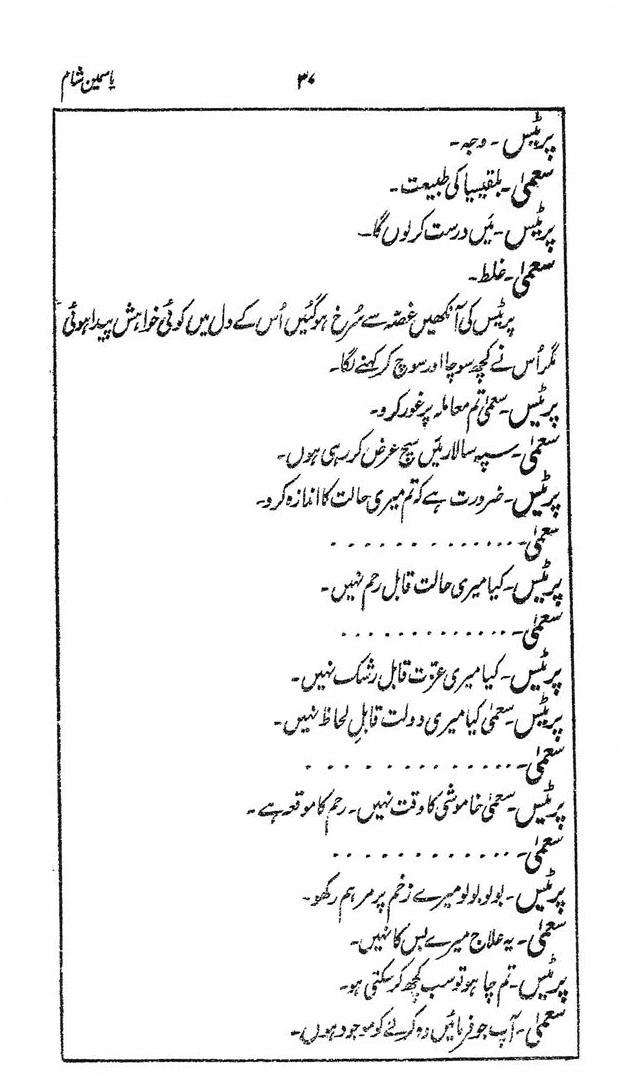 یاسمین شام ۳۷
پریٹس۔ وجہ۔
سعمیٰ۔ بلقیسیا کی طبیعت۔
پریٹس۔ میں درست کر لوں گا۔
سعمیٰ۔ غلط۔
پریٹس کی آنکھیں غصّہ سے سُرخ ہو گئیں اُس کے دل میں کوئی خواہش پیدا ہوئی
مگر اُس نے کچھ سوچا اور سوچ کر کہنے لگا۔
پریٹس۔ سعمیٰ تم معاملہ پر غور کرو۔
سعمیٰ۔ سپہ سالار میں سچ عرض کر رہی ہوں۔
پریٹس۔ ضرورت ہے کہ تم میری حالت کا اندازہ کرو۔
سعمیٰ۔ . . . . . . . . . . . . . .
پریٹس۔ کیا میری حالت قابل رحم نہیں۔
سعمیٰ۔ . . . . . . . . . . . . . .
پریٹس۔ کیا میری عزّت قابل رشک نہیں۔
پریٹس۔ سعمیٰ کیا میری دولت قابلِ لحاظ نہیں۔
سعمیٰ۔ . . . . . . . . . . . . . .
پریٹس۔ سعمیٰ خاموشی کا وقت نہیں۔ رحم کا موقعہ ہے۔
سعمیٰ۔ . . . . . . . . . . . . . .
پریٹس۔ بولو بولو میرے زخم پر مرہم رکھو۔
سعمیٰ۔ یہ علاج میرے بس کا نہیں۔
پریٹس۔ تم چاہو تو سب کچھ کر سکتی ہو۔
سعمیٰ۔ آپ جو فرمائیں وہ کرنے کو موجود ہوں۔